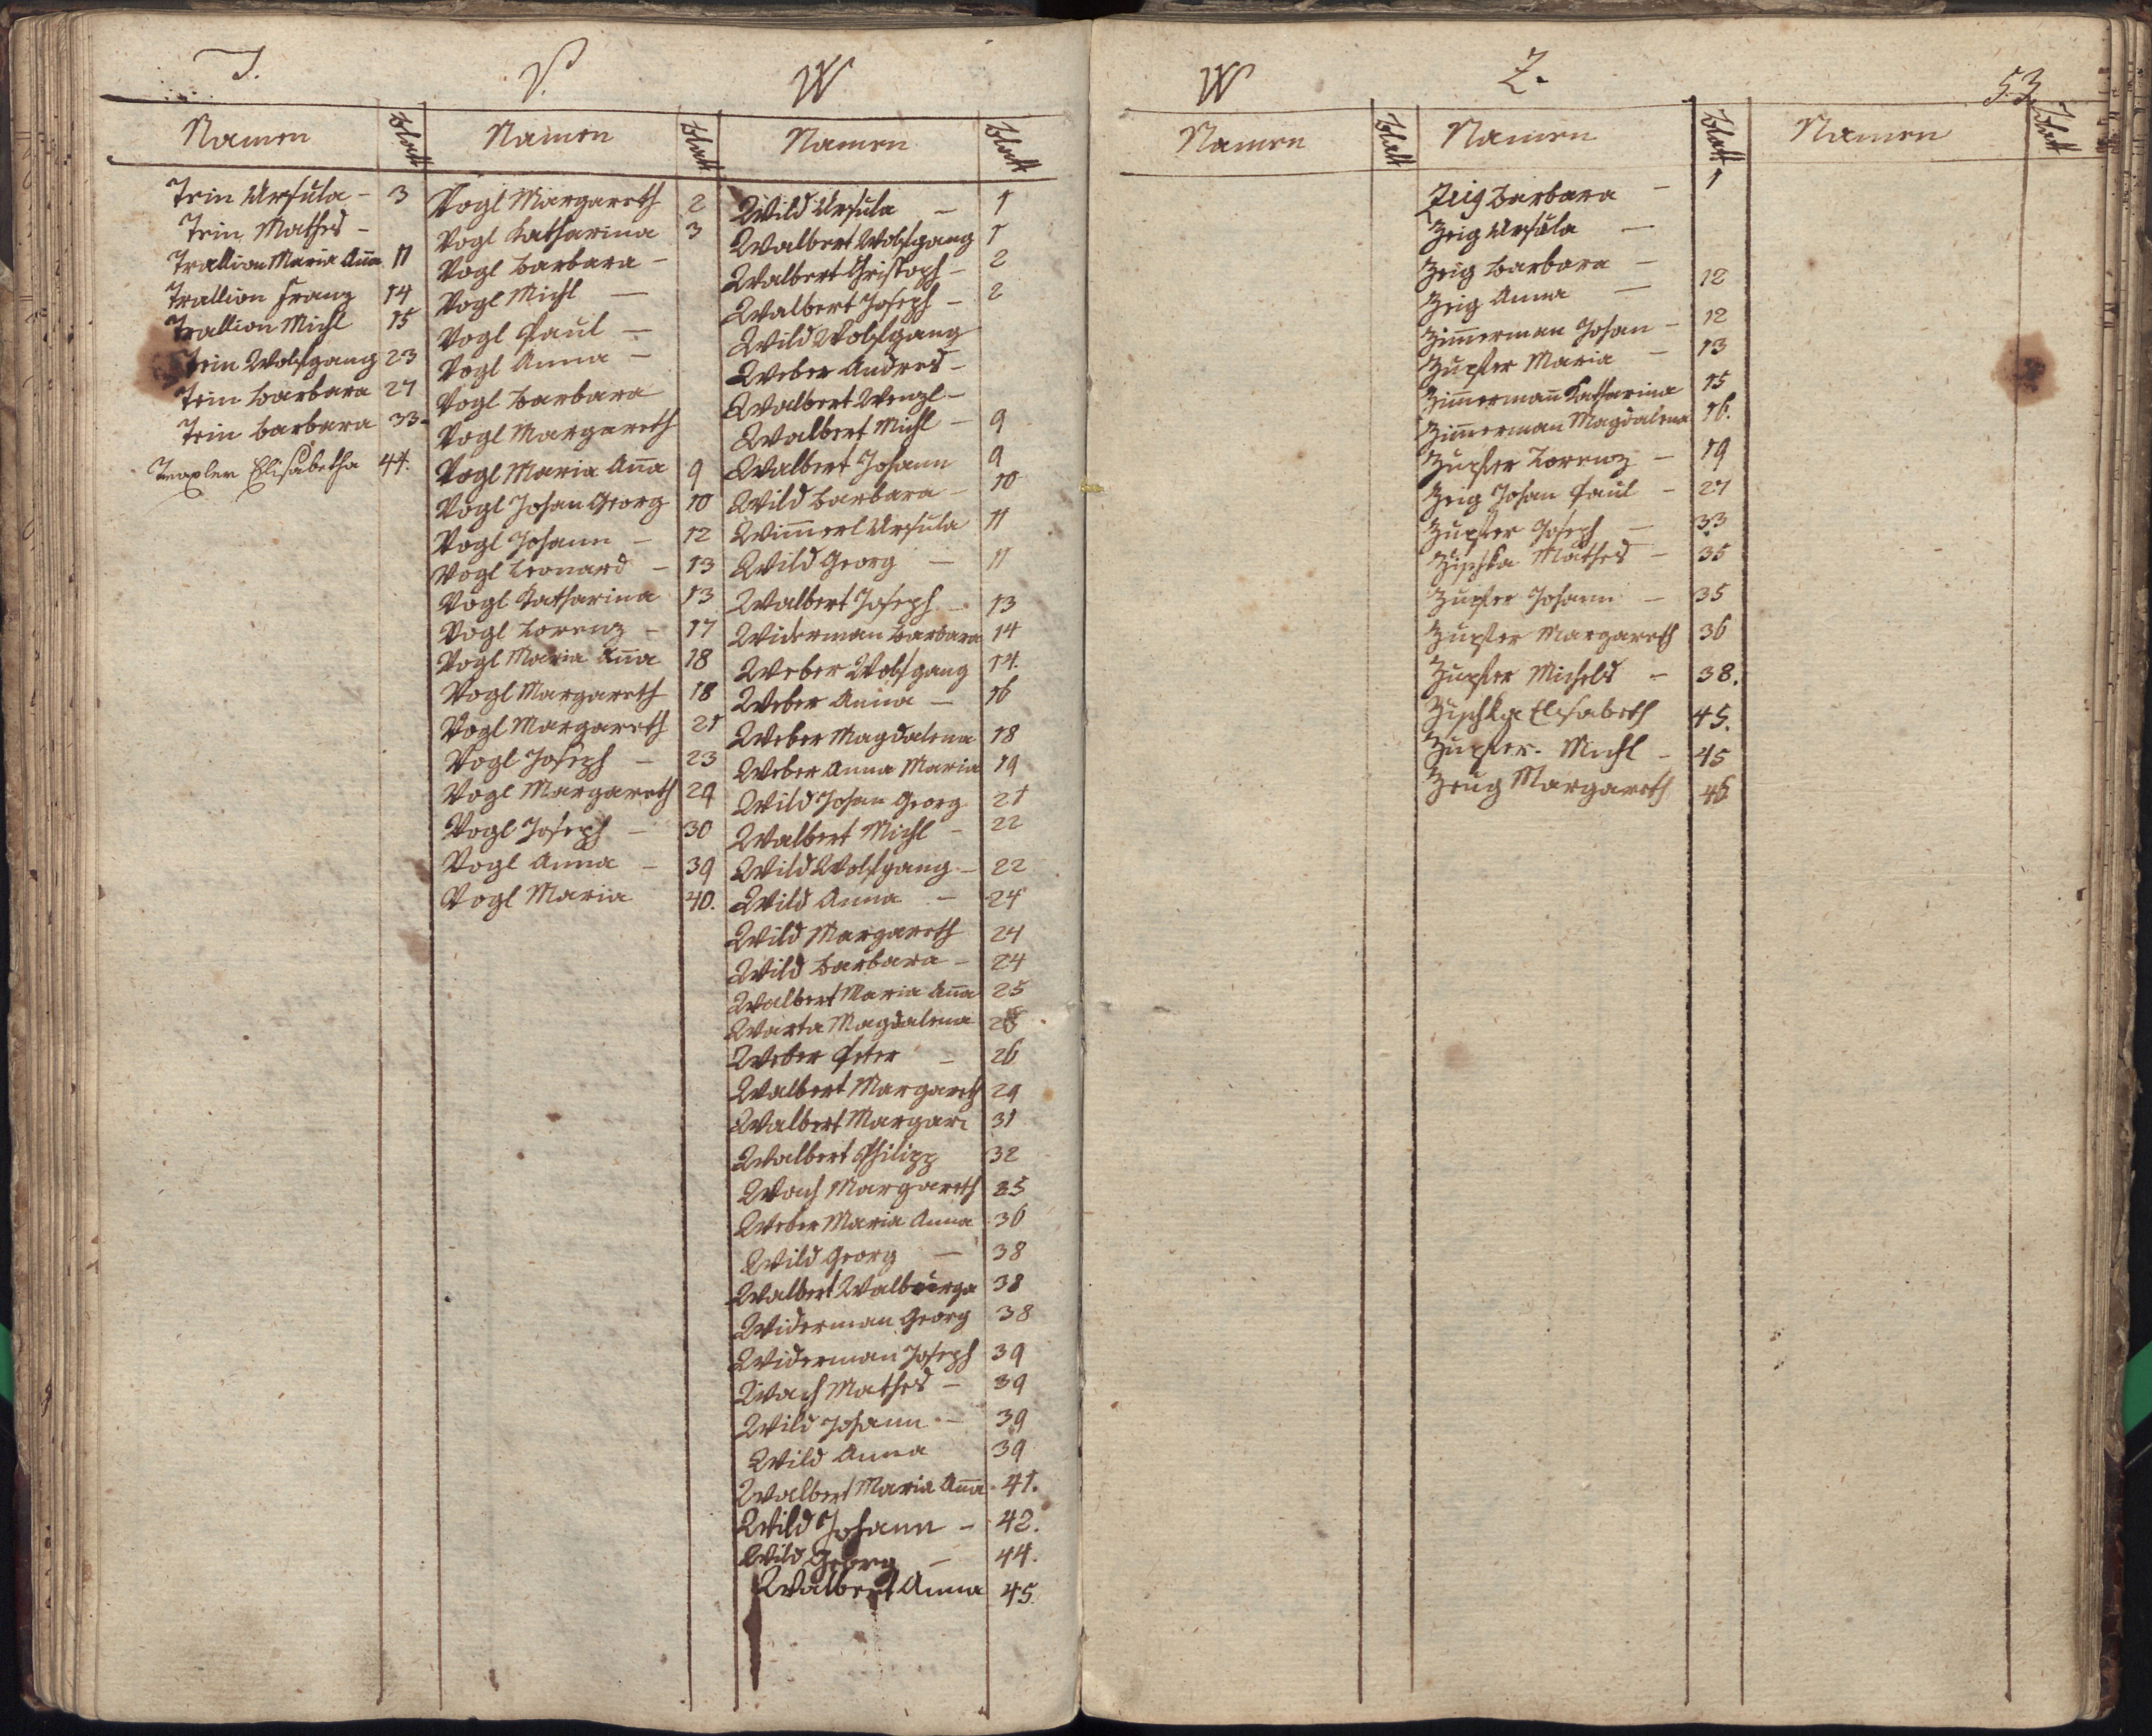 T.
Namen Blatt
Trin Ursula - 3
Trin Mathes -
Trallion Maria Aña 11
Trallion Franz 14
Trallion Michl 15
Trin Wolfgang 23
Trin Barbara 27
Trin Barbara 33
Traxler Elisabetha 44.
V.
Namen Blatt
Vogl Margareth 2
Vogl Katharina 3
Vogl Barbara -
Vogl Michl -
Vogl Paul -
Vogl Anna -
Vogl Barbara
Vogl Margareth
Vogl Maria Aña 9
Vogl Johan Georg 10
Vogl Johann - 12
Vogl Leonard - 13
Vogl Katharina 13
Vogl Lorenz - 17
Vogl Maria Aña 18
Vogl Margareth 18
Vogl Margareth 21
Vogl Joseph - 23
Vogl Margareth 29
Vogl Joseph - 30
Vogl Anna - 39
Vogl Maria 40.
W
Namen Blatt
Wild Ursula - 1
Walbert Wolfgang 1
Walbert Christoph - 2
Walbert Joseph - 2
Wild Wolfgang
Weber Andres -
Walbert Wenzl -
Walbert Michl - 9
Walbert Johann 9
Wild Barbara - 10
Wim̄erl Ursula 11
Wild Georg - 11
Walbert Joseph - 13
Widerman Barbara 14
Weber Wolfgang 14.
Weber Anna - 16
Weber Magdalena 18
Weber Anna Maria 19
Wild Johan Georg 21
Walbert Michl - 22
Wild Wolfgang - 22
Wild Anna - 24
Wild Margareth 24
Wild Barbara - 24
Walbert Maria Aña 25
Warta Magdalena
Weber Peter - 26
Walbert Margareth 29
Walbert Margar: 31
Walbert Philipp 32
Wach Margareth 35
Weber Maria Anna 36
Wild Georg - 38
Walbert Walburga 38
Widerman Georg 38
Widerman Joseph 39
Wach Mathes - 39
Wild Johann - 39
Wild Anna 39
Walbert Maria Aña 41.
Wild Johann - 42.
Wild Georg - 44.
Walbert Anna 45.
W
Namen Blatt
Z.
Namen Blatt
Zeig Barbara - 1
Zeig Ursula -
Zeig Barbara -
Zeig Anna - 12
Zim̄erman Johan - 12
Zupfer Maria - 13
Zim̄ermañ Katharina 15
Zim̄erman Magdalena 16.
Zupfer Lorenz - 19
Zeig Johan Paul - 27
Zupfer Joseph - 33
Zischka Mathes - 35
Zupfer Johann - 35
Zupfer Margareth 36
Zupfer Michels - 38.
Zischka Elisabeth 45.
Zupfer Michl - 45
Zeug Margareth 46
53
Namen Blatt